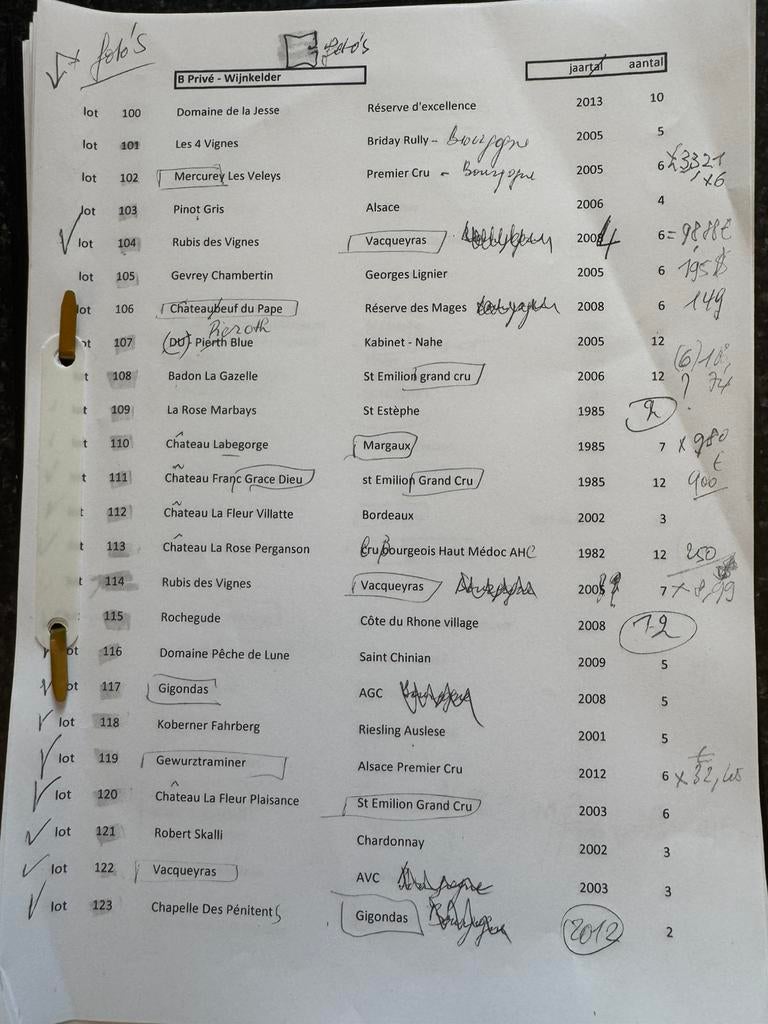 foto's foto's
B Privé - Wijnkelder jaartal aantal
lot 100 Domaine de la Jesse Réserve d'excellence 2013 10
lot 101 Les 4 Vignes Briday Rully - Bourgogne 2005 5
lot 102 Mercurey Les Veleys Premier Cru - Bourgogne 2005 6 x 3321 x6
lot 103 Pinot Gris Alsace 2006 4
lot 104 Rubis des Vignes Vacqueyras 2004 6 =
lot 105 Gevrey Chambertin Georges Lignier 2005 6 195
lot 106 Châteaubeuf du Pape Réserve des Mages 2008 6 149
Pieroth
ot 107 (DU) Pierth Blue Kabinet - Nahe 2005 12
t 108 Badon La Gazelle St Emilion grand cru 2006 12 (6) ? 74
t 109 La Rose Marbays St Estèphe 1985 2
t 110 Château Labegorge Margaux 1985 7 x 980 €
t 111 Château Franc Grace Dieu st Emilion Grand Cru 1985 12 900
t 112 Château La Fleur Villatte Bordeaux 2002 3
t 113 Château La Rose Perganson Cru Bourgeois Haut Médoc AHC 1982 12 250
t 114 Rubis des Vignes Vacqueyras 7 x 8,99
115 Rochegude Côte du Rhone village 2008 12
ot 116 Domaine Pêche de Lune Saint Chinian 2009 5
ot 117 Gigondas AGC 2008 5
lot 118 Koberner Fahrberg Riesling Auslese 2001 5
lot 119 Gewurztraminer Alsace Premier Cru 2012 6 x 32,45
lot 120 Château La Fleur Plaisance St Emilion Grand Cru 2003 6
lot 121 Robert Skalli Chardonnay 2002 3
lot 122 Vacqueyras AVC 2003 3
lot 123 Chapelle Des Pénitents Gigondas 2012 2